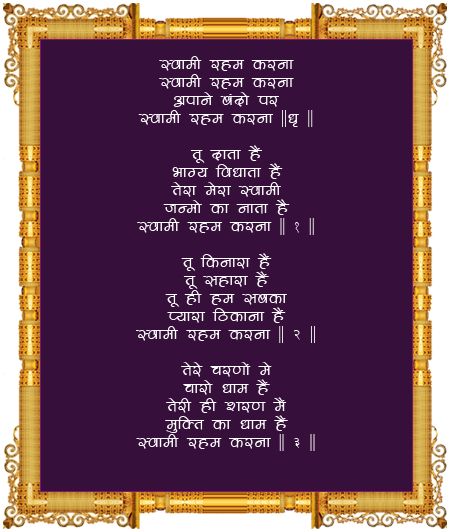 स्वामी रहम करना
स्वामी रहम करना
अपाने बंदो पर
स्वामी रहम करना ॥धृ ॥
तू दाता हैं
भाग्य विधाता हैं
तेरा मेरा स्वामी
जन्मो का नाता है
स्वामी रहम करना ॥ १ ॥
तू किनारा हैं
तू सहारा हैं
तू ही हम सबका
प्यारा ठिकाना हैं
स्वामी रहम करना ॥ २ ॥
तेरे चरणों मे
चारो धाम हैं
तेरी ही शरण मैं
मुक्ति का धाम हैं
स्वामी रहम करना ॥ ३ ॥